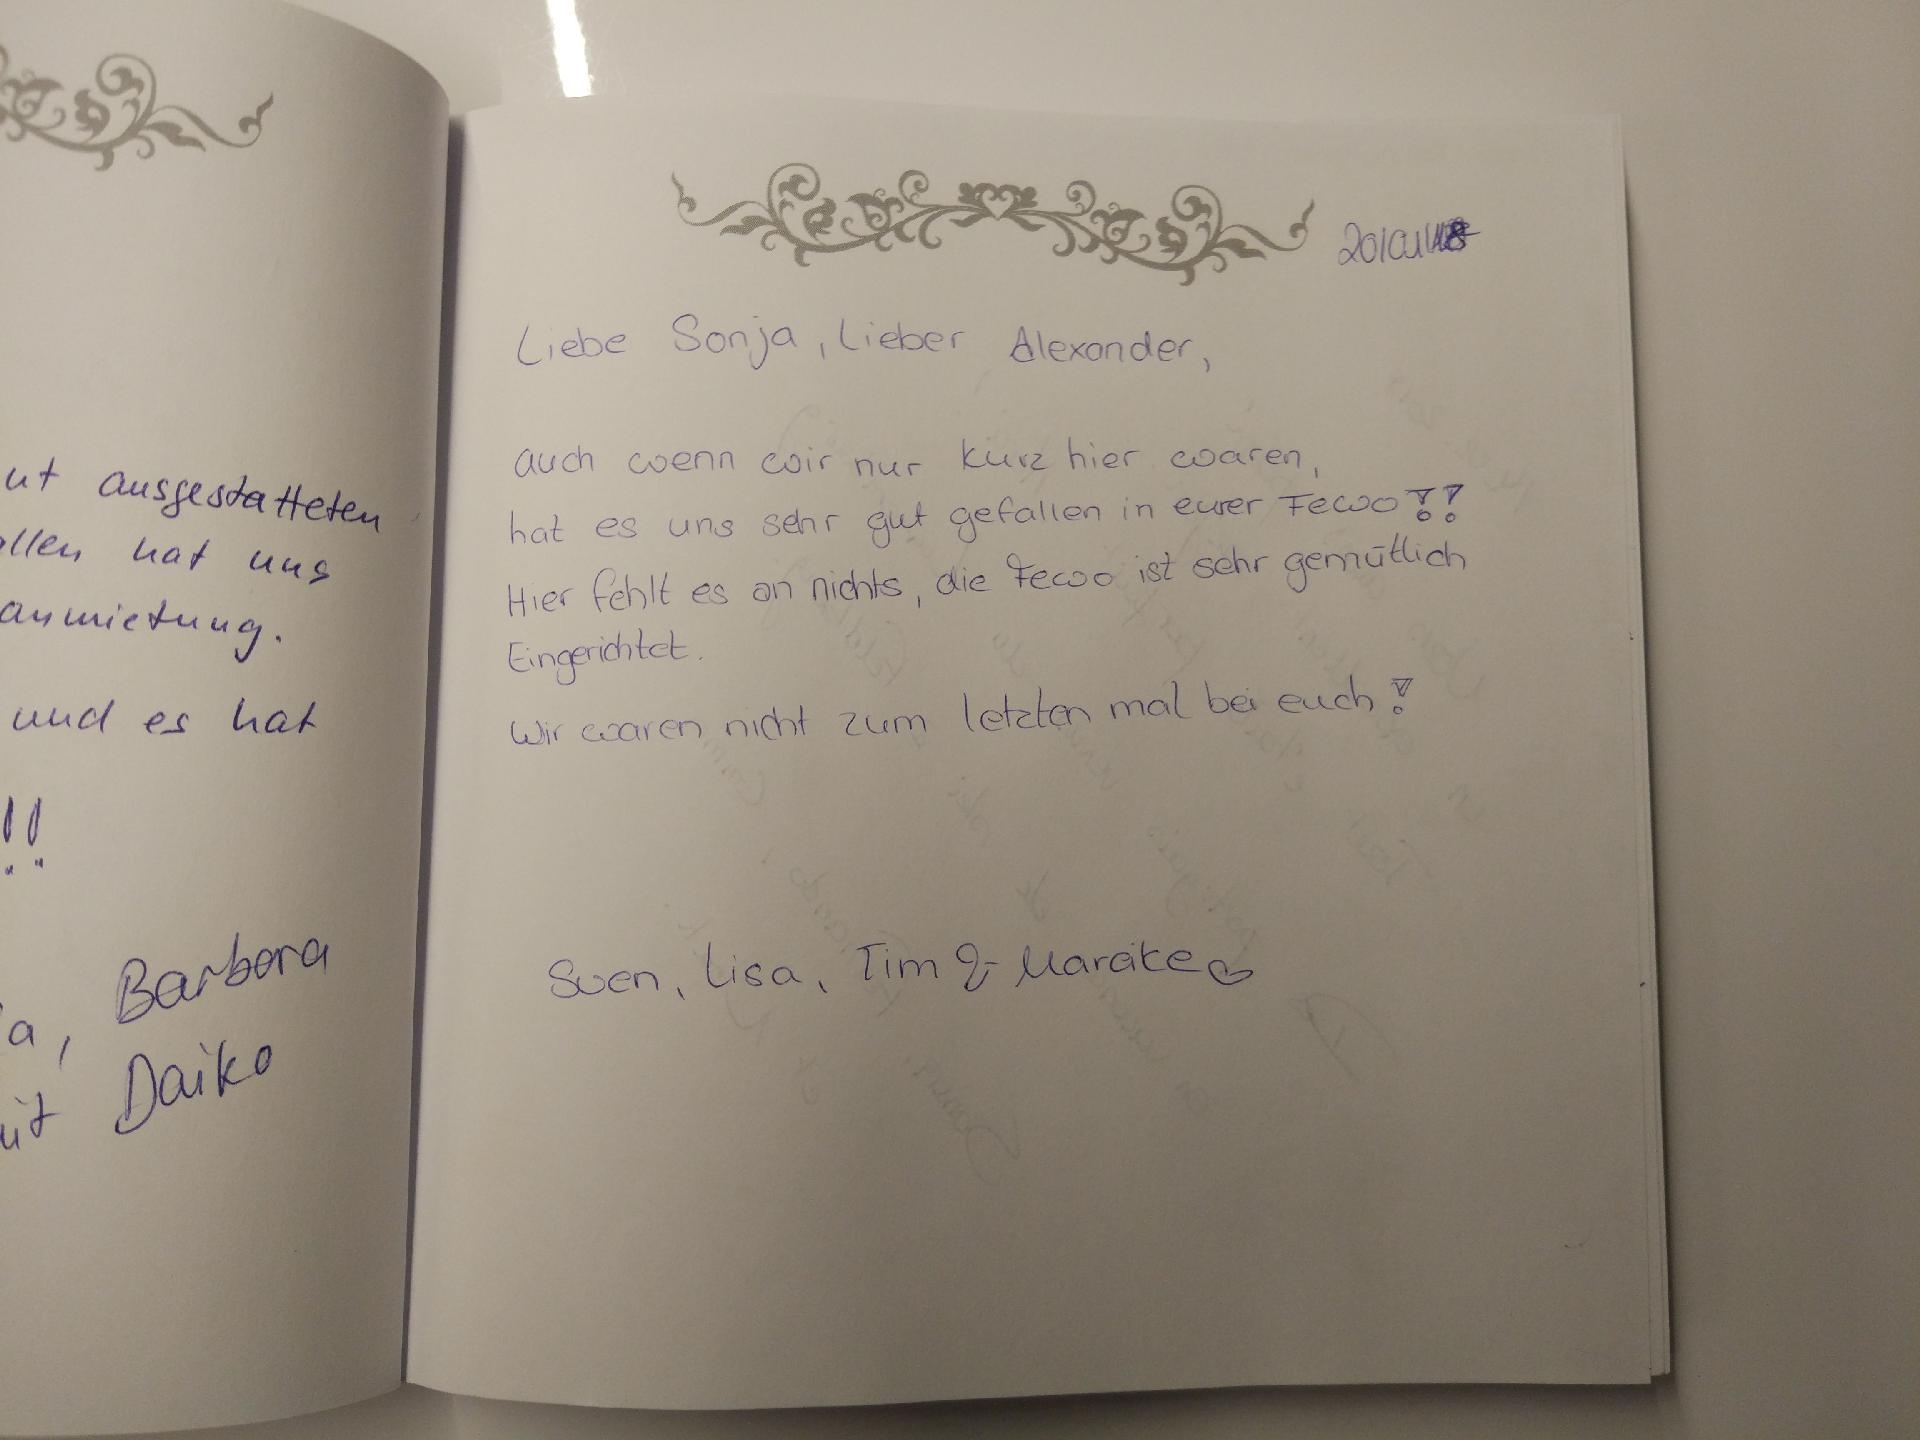 ut ausgestatteten
allen hat uns
anmietung.
und es hat
!!
a, Barbora
mit Daiko
Liebe Sonja, Lieber Alexander,
auch wenn wir nur kurz hier waren,
hat es uns sehr gut gefallen in eurer Fewo!!
Hier fehlt es an nichts, die Fewo ist sehr gemütlich
Eingerichtet.
Wir waren nicht zum letzten mal bei euch!
Sven, Lisa, Tim & Mareike